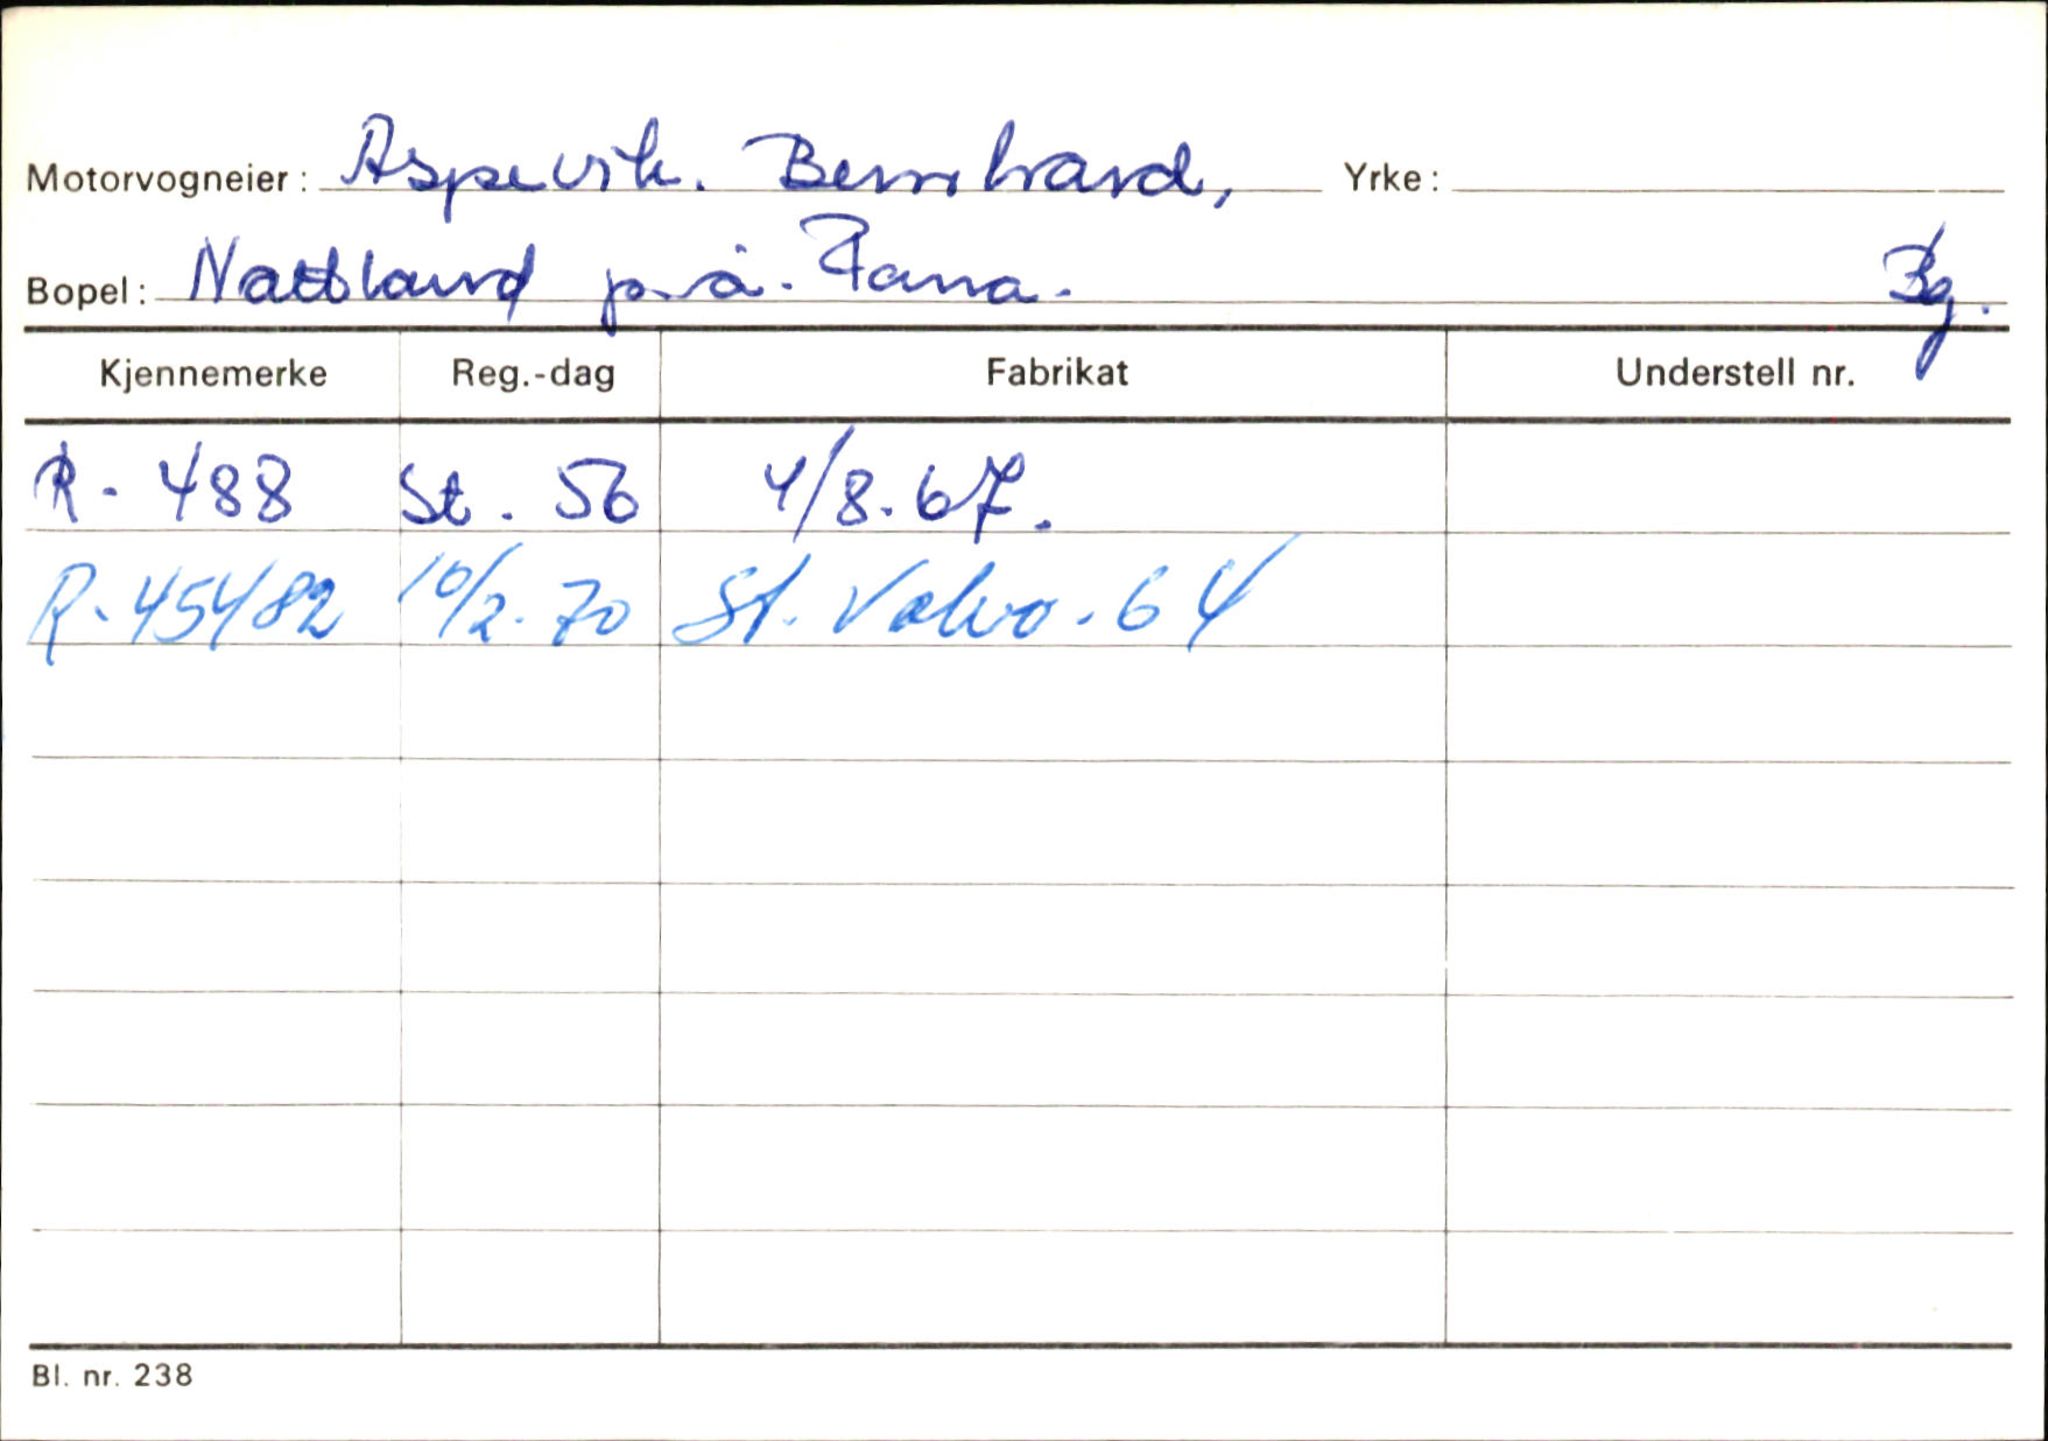 Motorvogneier: Aspevik. Bernhard, Yrke:
Bopel: Nattland p.å. Fana. Bg.
Kjennemerke Reg.-dag Fabrikat Understell nr.
R. 488 St. 56 4/8. 67.
R. 45482 10/2. 70 St. Volvo. 64
Bl. nr. 238